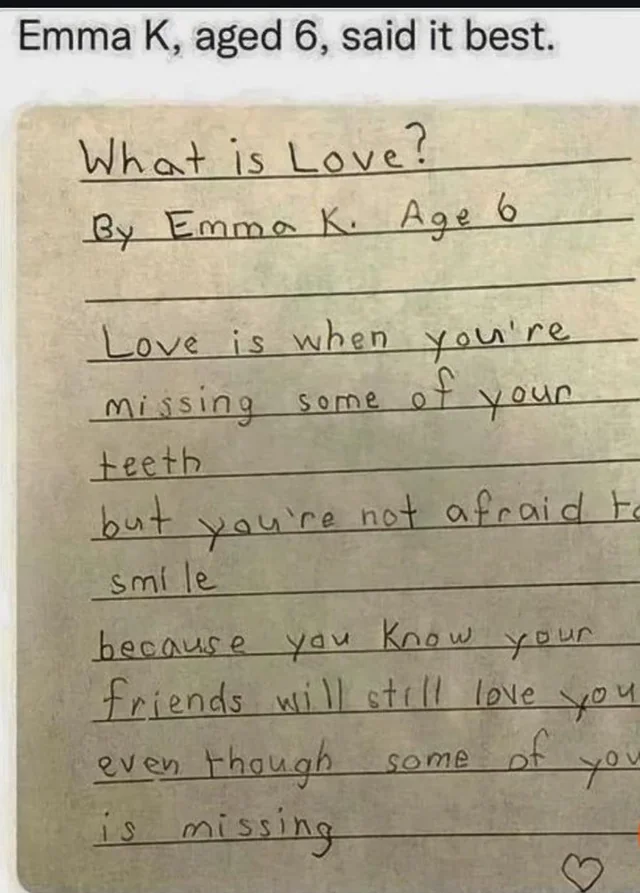 Emma K, aged 6, said it best.
What is Love?
By Emma K. Age 6
Love is when you're
missing some of your
teeth
but you're not afraid to
smile
because you know your
friends will still love you
even though some of you
is missing